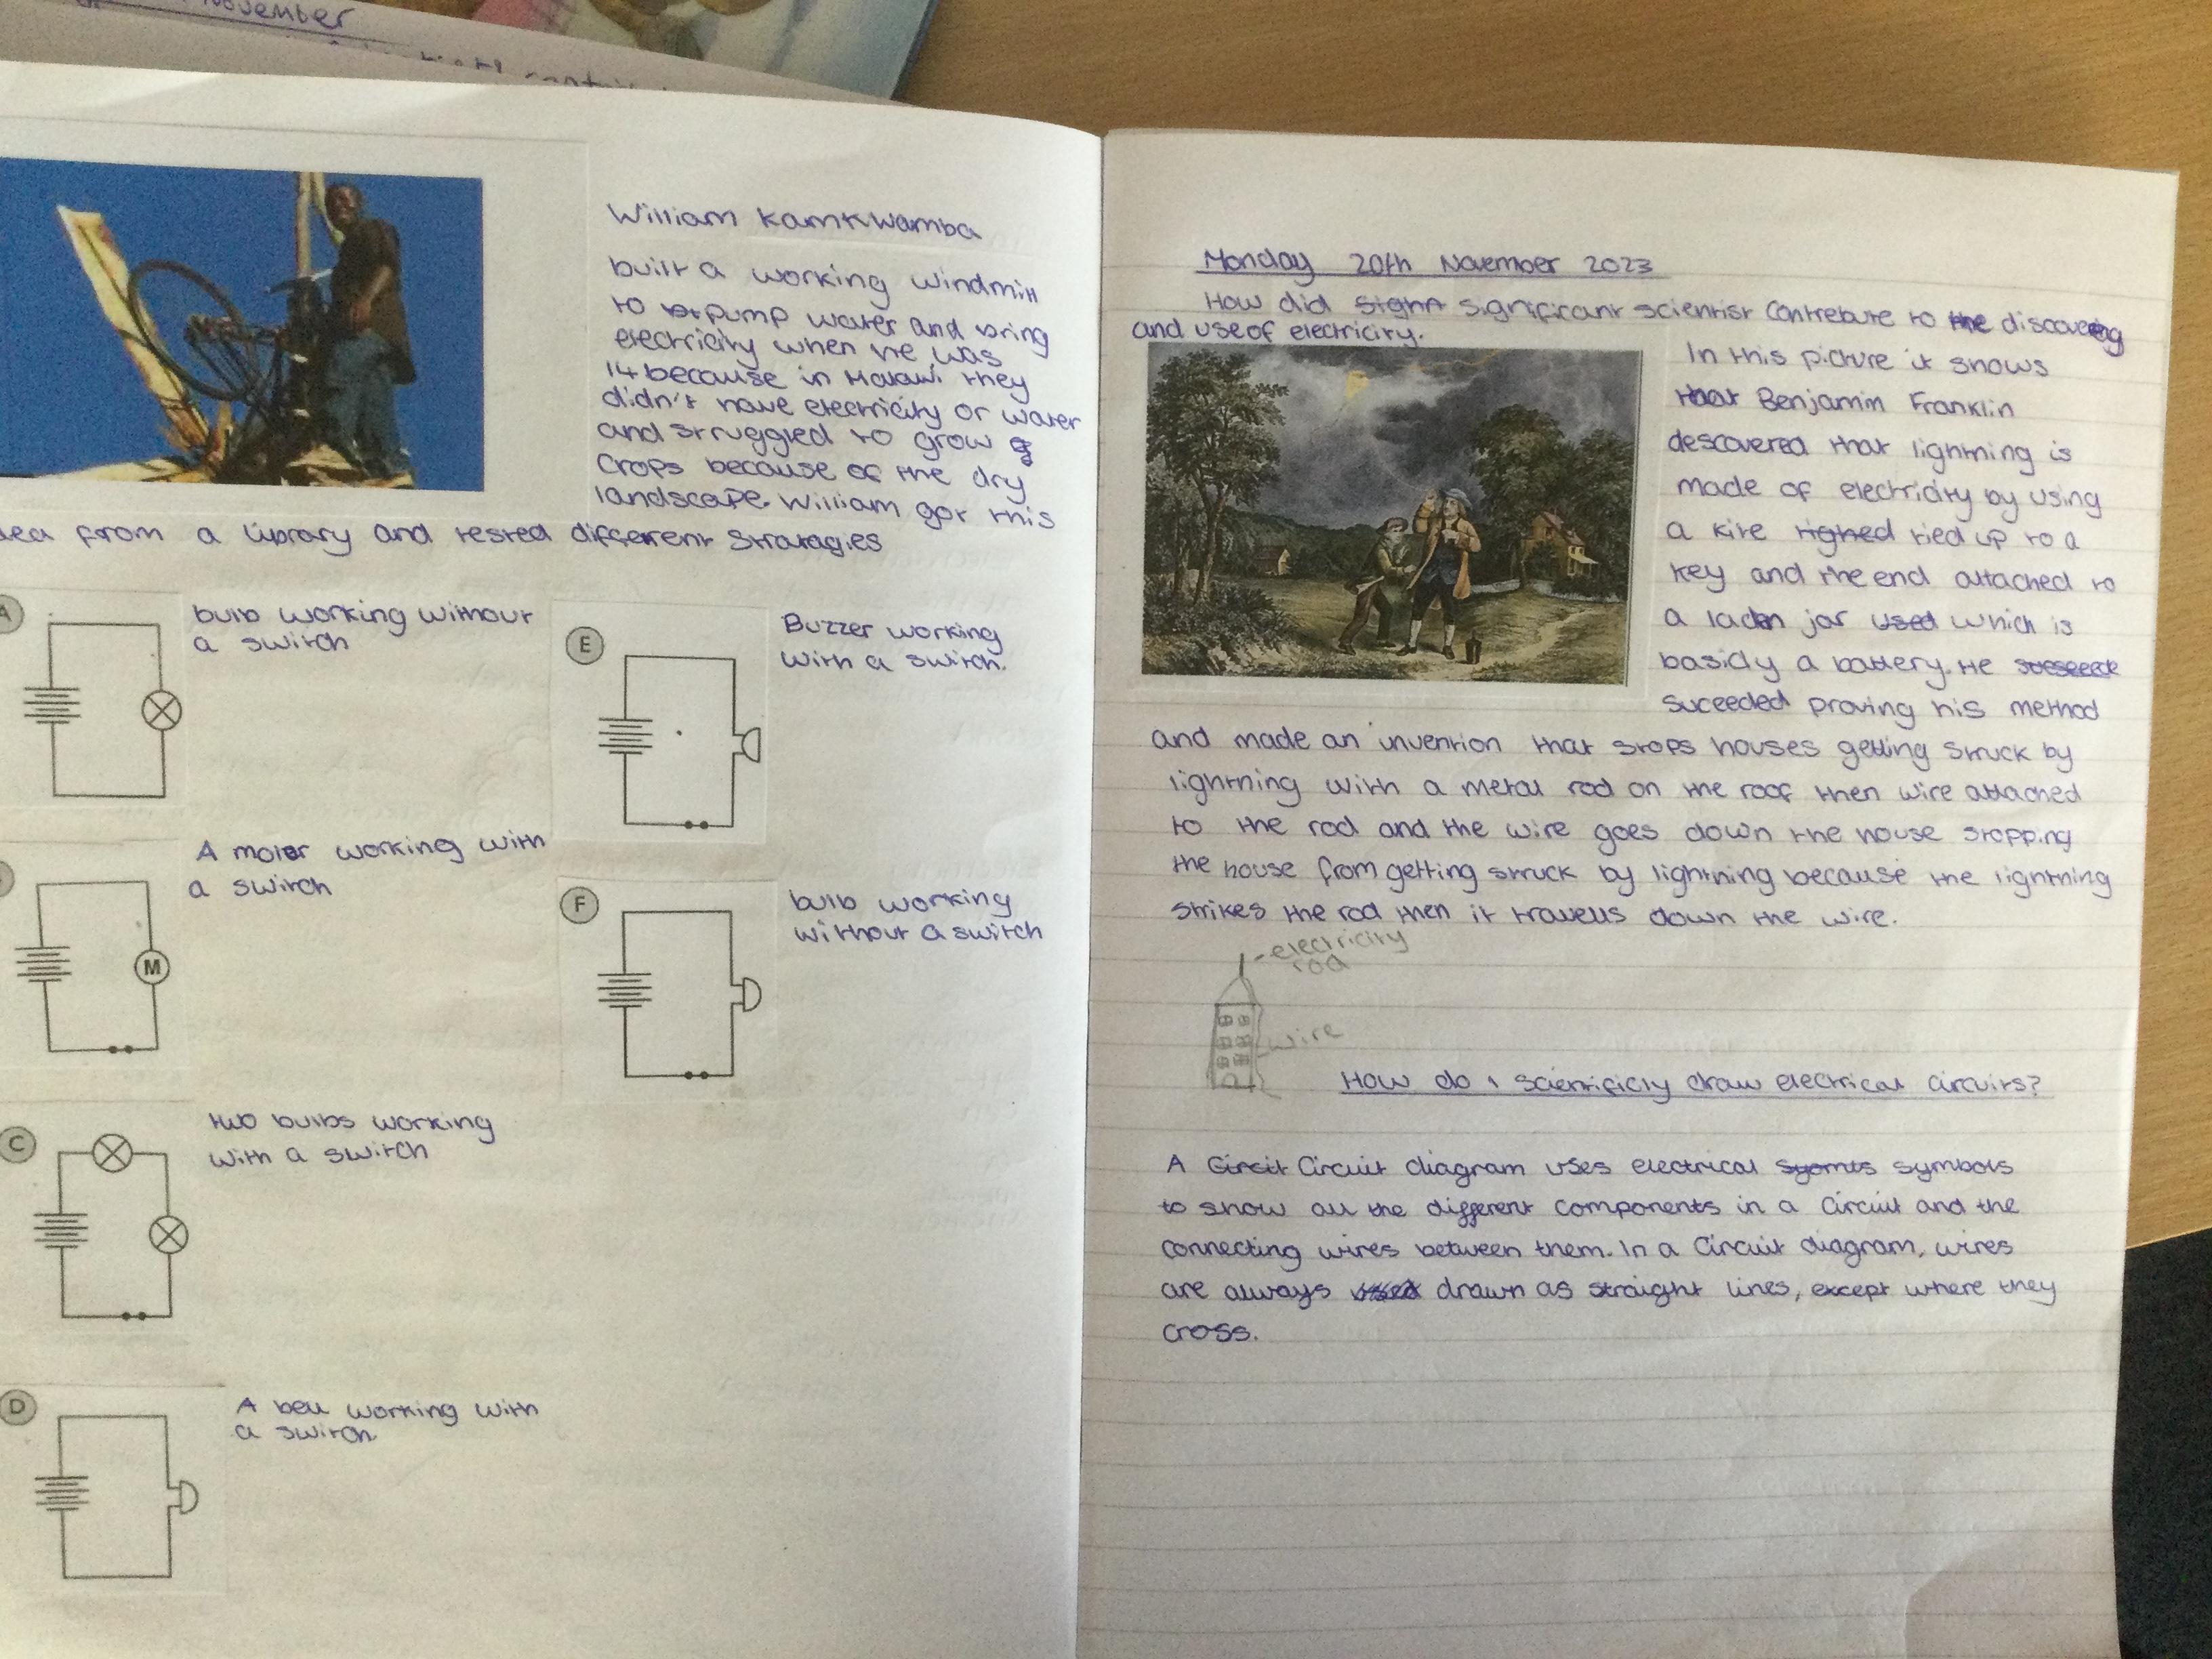 November
William Kamkwamba
built a working windmill
to pump water and bring
electricity when he was
14 because in Malawi they
didn't have electricity or water
and struggled to grow
crops because of the dry
landscape. William got this
dea from a library and tested different stratagies
A
bulb working without
a switch
A motor working with
a switch
M
C
two bulbs working
with a switch
D
A bell working with
a switch
E
Buzzer working
with a switch.
F
bulb working
without a switch
Monday 20th November 2023
How did significant scientist contrebute to discovering
and use of electricity.
In this picture it shows
that Benjamin Franklin
descovered that lightning is
made of electricity by using
a kite tied up to a
key and the end attached to
a laden jar which is
basicly a battery. He
suceeded proving his method
and made an invention that stops houses getting struck by
lightning with a metal rod on the roof then wire attached
to the rod and the wire goes down the house stopping
the house from getting struck by lightning because the lightning
strikes the rod then it travells down the wire.
electricity
rod
wire
How do i scientificly draw electrical circuits?
A Circuit diagram uses electrical symbols
to show all the different components in a circuit and the
connecting wires between them. In a Circuit diagram, wires
are always drawn as straight lines, except where they
cross.